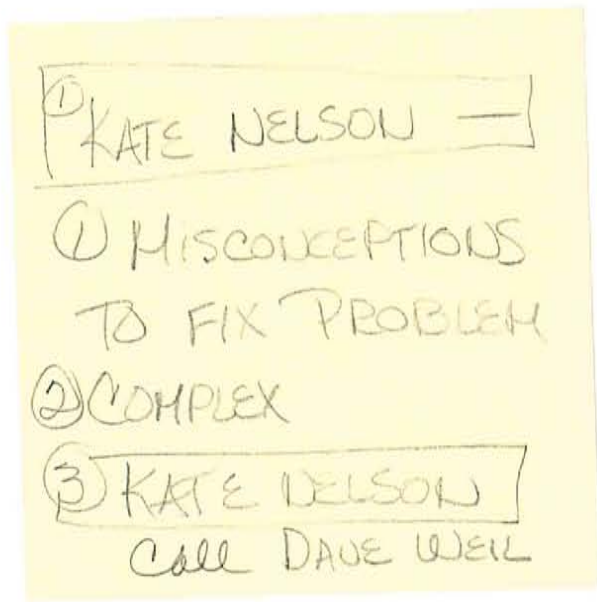 ① KATE NELSON —
① MISCONCEPTIONS
TO FIX PROBLEM
② COMPLEX
③ KATE NELSON
Call DAVE WEIL